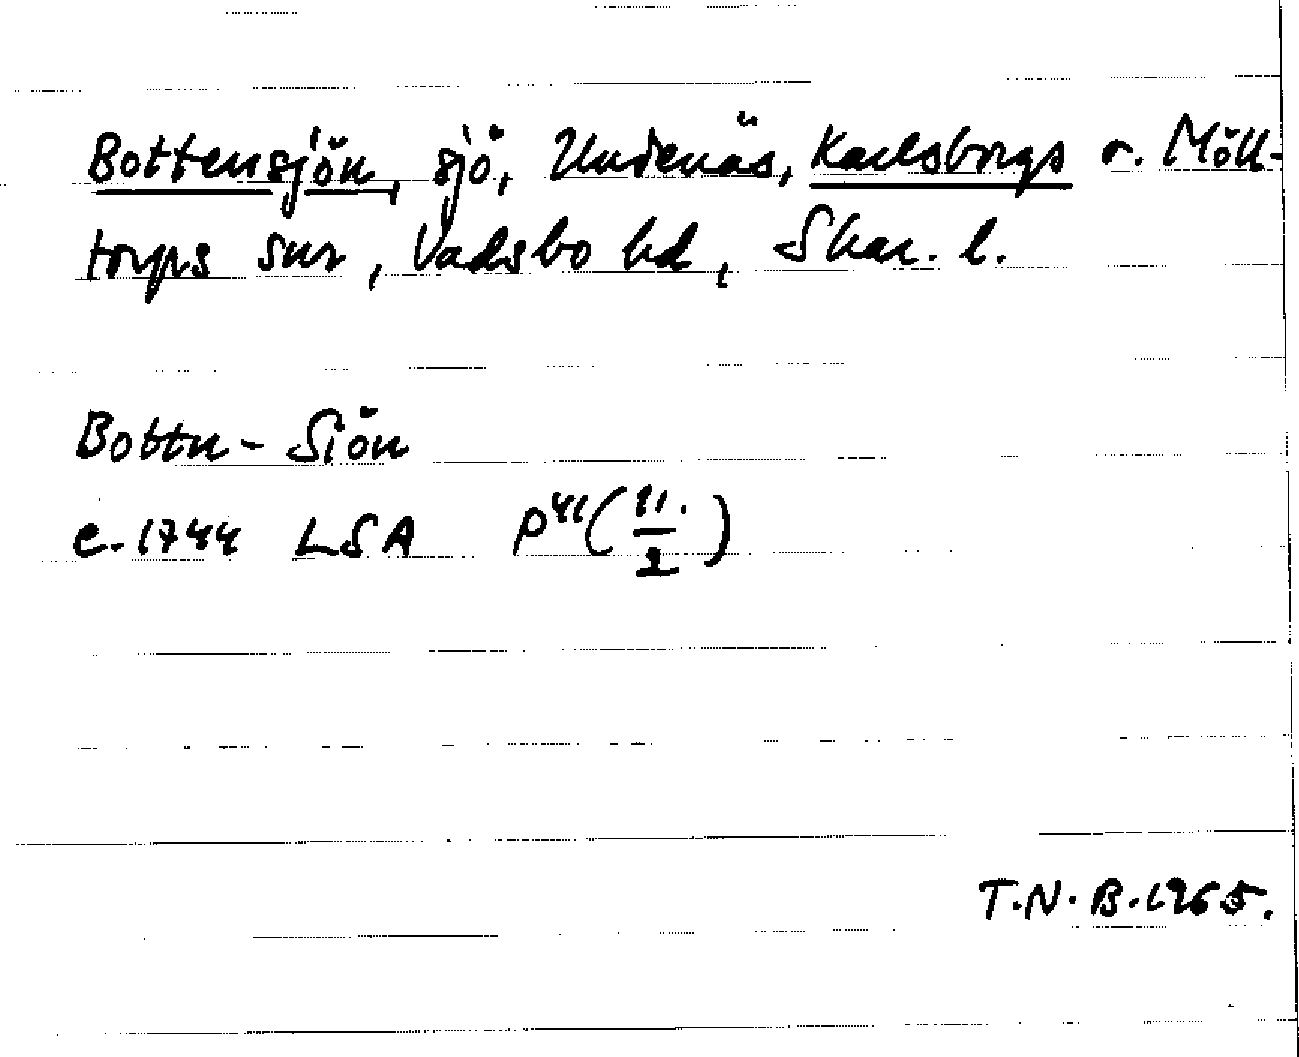 Bottensjön, sjö, Undenäs, Karlsborgs o. Möll-
torps snr, Vadsbo hd, Skar. l.
Bottn-Siön
c. 1744 LSA P41(11./2)
T.N.B. 1965.